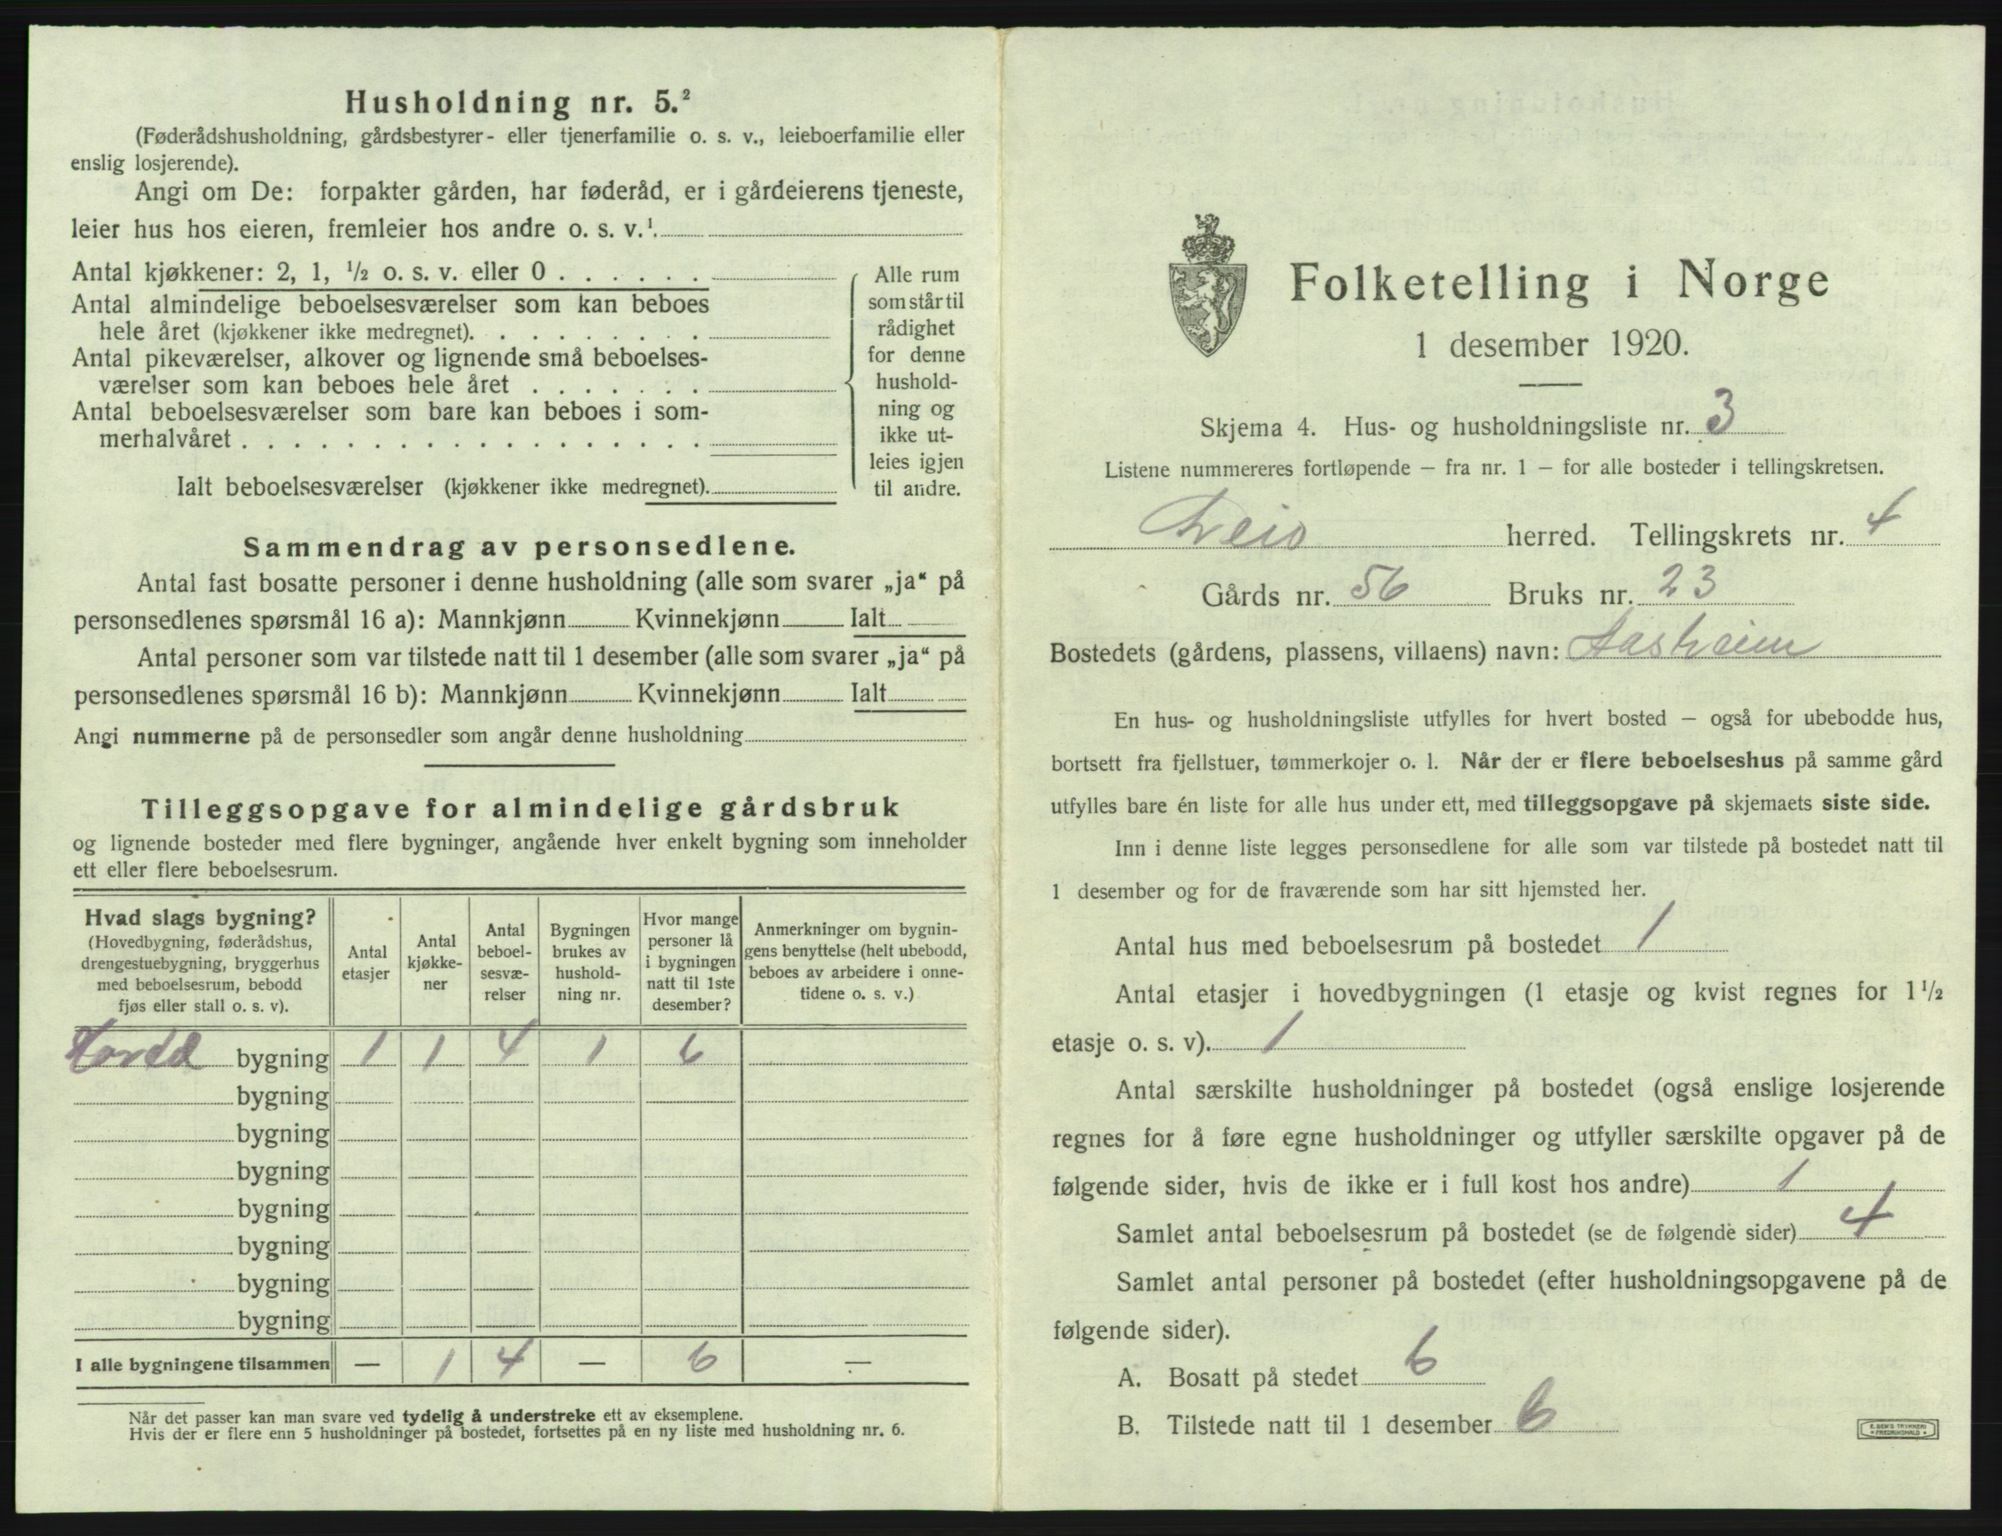 Husholdning nr. 5.²
(Føderådshusholdning, gårdsbestyrer- eller tjenerfamilie o. s. v., leieboerfamilie eller
enslig losjerende).
Angi om De: forpakter gården, har føderåd, er i gårdeierens tjeneste,
leier hus hos eieren, fremleier hos andre o. s. v.¹.
Antal kjøkkener: 2, 1, ½ o. s. v. eller 0 . . . . . .
Antal almindelige beboelsesværelser som kan beboes
hele året (kjøkkener ikke medregnet). . . . . . . . .
Antal pikeværelser, alkover og lignende små beboelses-
værelser som kan beboes hele året . . . . . . .
Antal beboelsesværelser som bare kan beboes i som-
merhalvåret . . . . . . . . . . . . . . . . . .
Ialt beboelsesværelser (kjøkkener ikke medregnet).
Alle rum
som står til
rådighet
for denne
hushold-
ning og
ikke ut-
leies igjen
til andre.
Sammendrag av personsedlene.
Antal fast bosatte personer i denne husholdning (alle som svarer „ja“ på
personsedlenes spørsmål 16 a): Mannkjønn Kvinnekjønn Ialt
Antal personer som var tilstede natt til 1 desember (alle som svarer „ja“ på
personsedlenes spørsmål 16 b): Mannkjønn Kvinnekjønn Ialt
Angi nummerne på de personsedler som angår denne husholdning
Tilleggsopgave for almindelige gårdsbruk
og lignende bosteder med flere bygninger, angående hver enkelt bygning som inneholder
ett eller flere beboelsesrum.
Hvad slags bygning?
(Hovedbygning, føderådshus,
drengestuebygning, bryggerhus
med beboelsesrum, bebodd
fjøs eller stall o. s. v).
Antal
etasjer
Antal
kjøkke-
ner
Antal
beboel-
sesvæ-
relser
Bygningen
brukes av
hushold-
ning nr.
Hvor mange
personer lå
i bygningen
natt til 1ste
desember?
Anmerkninger om bygnin-
gens benyttelse (helt ubebodd,
beboes av arbeidere i onne-
tidene o. s. v.)
bygning 1 1 4 1 6
bygning
bygning
bygning
bygning
bygning
bygning
bygning
I alle bygningene tilsammen — 1 4 — 6 —
Når det passer kan man svare ved tydelig å understreke ett av eksemplene.
Hvis der er flere enn 5 husholdninger på bostedet, fortsettes på en ny liste med husholdning nr. 6.
Folketelling i Norge
1 desember 1920.
Skjema 4. Hus- og husholdningsliste nr. 3
Listene nummereres fortløpende — fra nr. 1 — for alle bosteder i tellingskretsen.
herred. Tellingskrets nr. 4
Gårds nr. 56 Bruks nr. 23
Bostedets (gårdens, plassens, villaens) navn: Aasheim
En hus- og husholdningsliste utfylles for hvert bosted — også for ubebodde hus,
bortsett fra fjellstuer, tømmerkojer o. l. Når der er flere beboelseshus på samme gård
utfylles bare én liste for alle hus under ett, med tilleggsopgave på skjemaets siste side.
Inn i denne liste legges personsedlene for alle som var tilstede på bostedet natt til
1 desember og for de fraværende som har sitt hjemsted her.
Antal hus med beboelsesrum på bostedet 1
Antal etasjer i hovedbygningen (1 etasje og kvist regnes for 1½
etasje o. s. v). 1
Antal særskilte husholdninger på bostedet (også enslige losjerende
regnes for å føre egne husholdninger og utfyller særskilte opgaver på de
følgende sider, hvis de ikke er i full kost hos andre) 1
Samlet antal beboelsesrum på bostedet (se de følgende sider) 4
Samlet antal personer på bostedet (efter husholdningsopgavene på de
følgende sider).
A. Bosatt på stedet 6
B. Tilstede natt til 1 desember 6